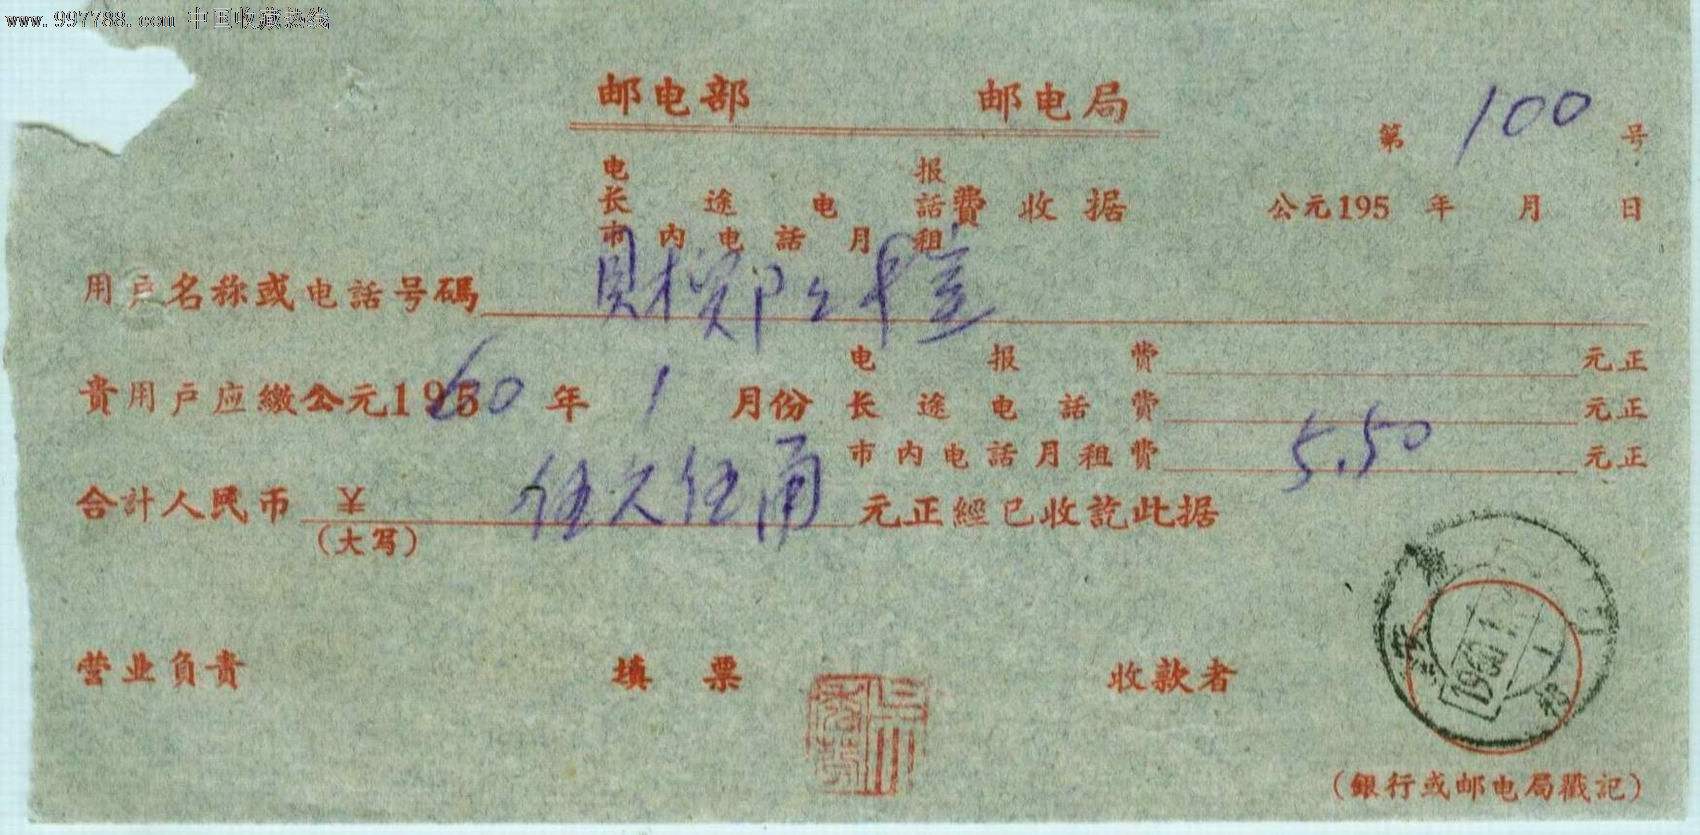 www.997788.com 中国收藏热线
邮电部 邮电局
第 100 号
电报
长途电话费 收据
市内电話月租
公元195 年 月 日
用户名称或电話号碼
貴用户应繳公元1960 年 1 月份
电报費 元正
长途电話費 元正
市内电話月租費 5.50 元正
合計人民币 ¥ 伍元伍角 元正經已收訖此据
(大写)
营业负責 填票 收款者
1960.1
(銀行或邮电局戳記)